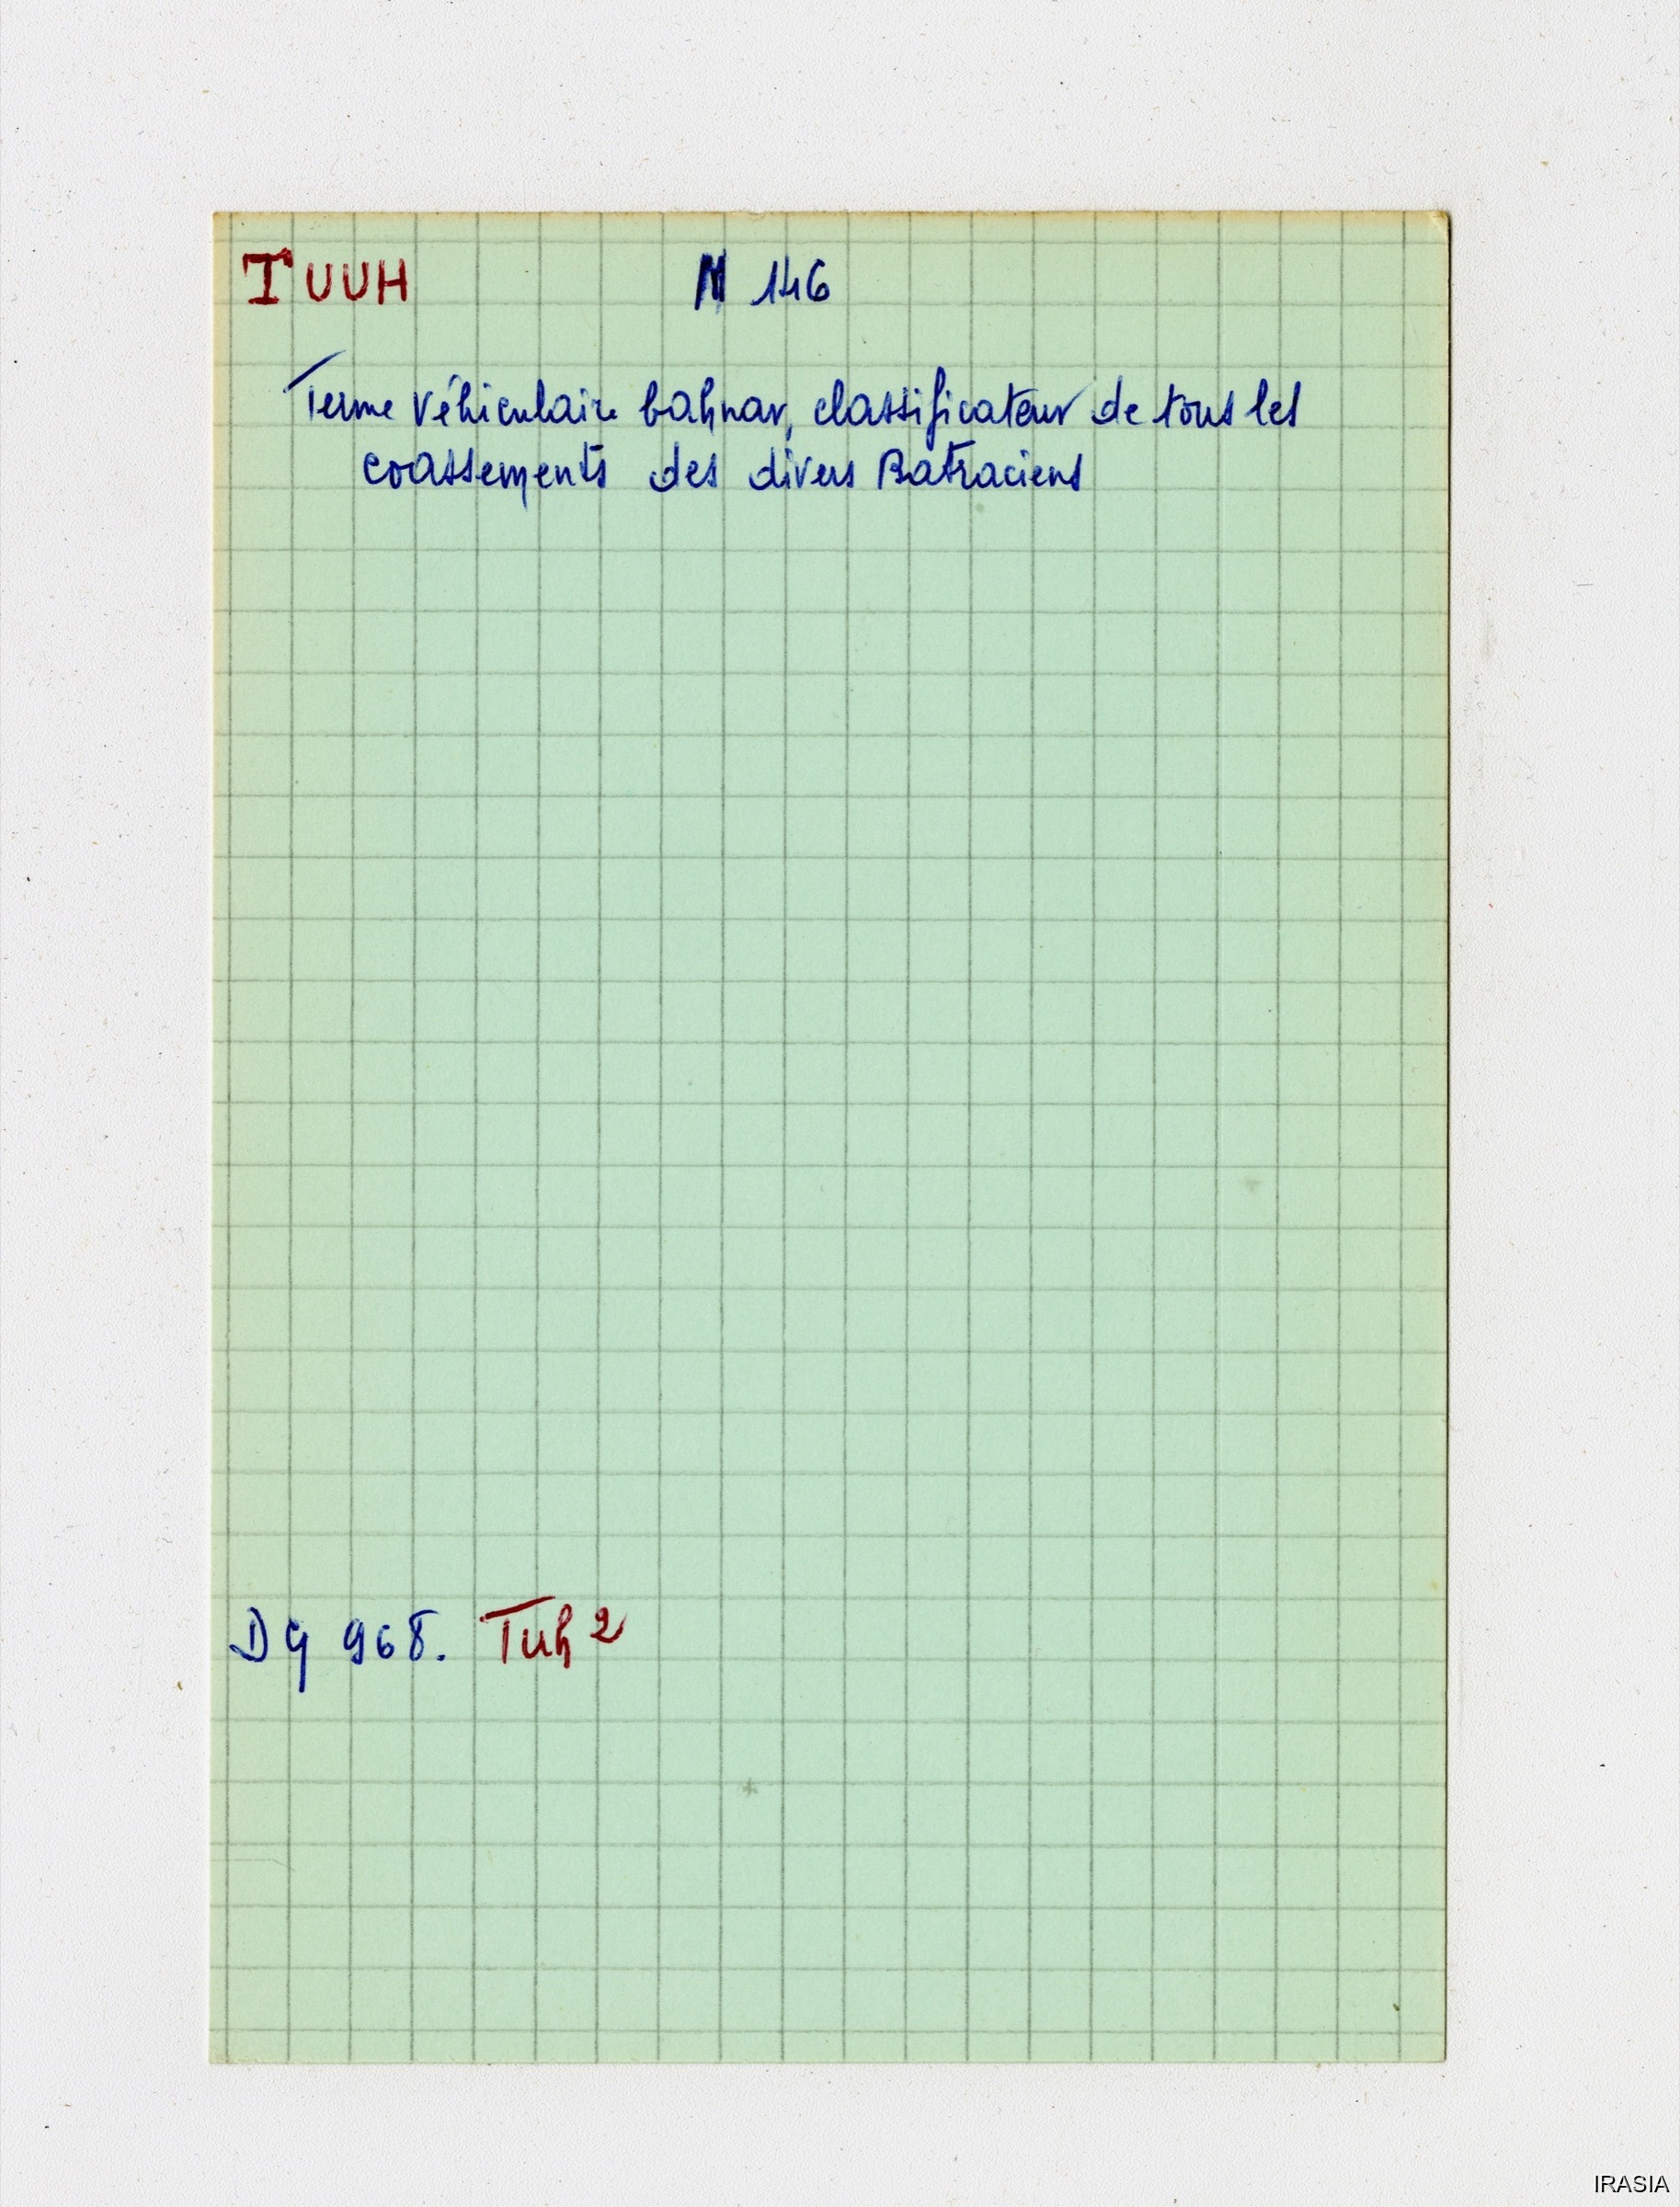 TUUH N 146
Terme véhiculaire bahnar, classificateur de tous les
coassements des divers Batraciens
DG 968. Tuh 2
IRASIA